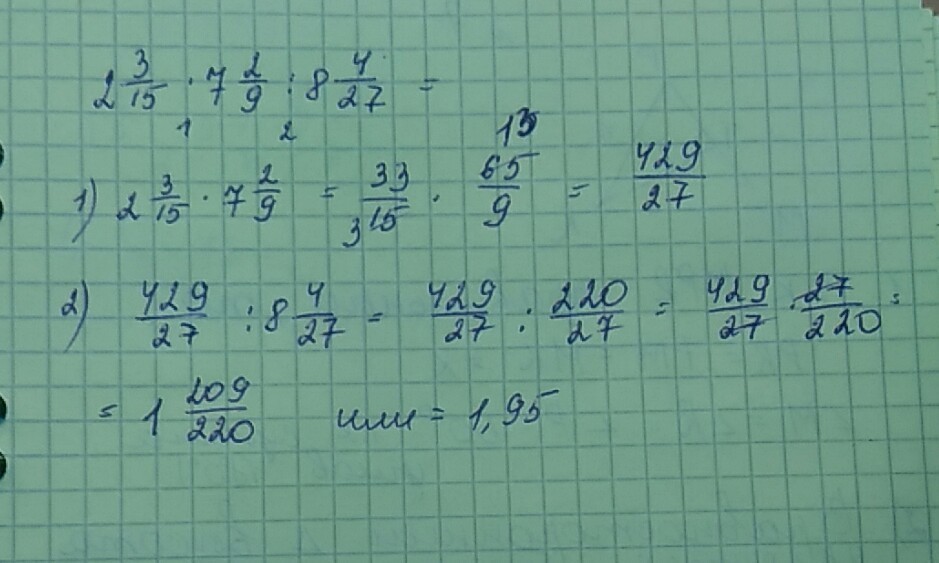 2 3/15 · 7 2/9 : 8 4/27 =
1 2
1) 2 3/15 · 7 2/9 = 33/15 · 65/9 = 429/27
3 13
2) 429/27 : 8 4/27 = 429/27 : 220/27 = 429/27 · 27/220 =
= 1 209/220 или = 1,95